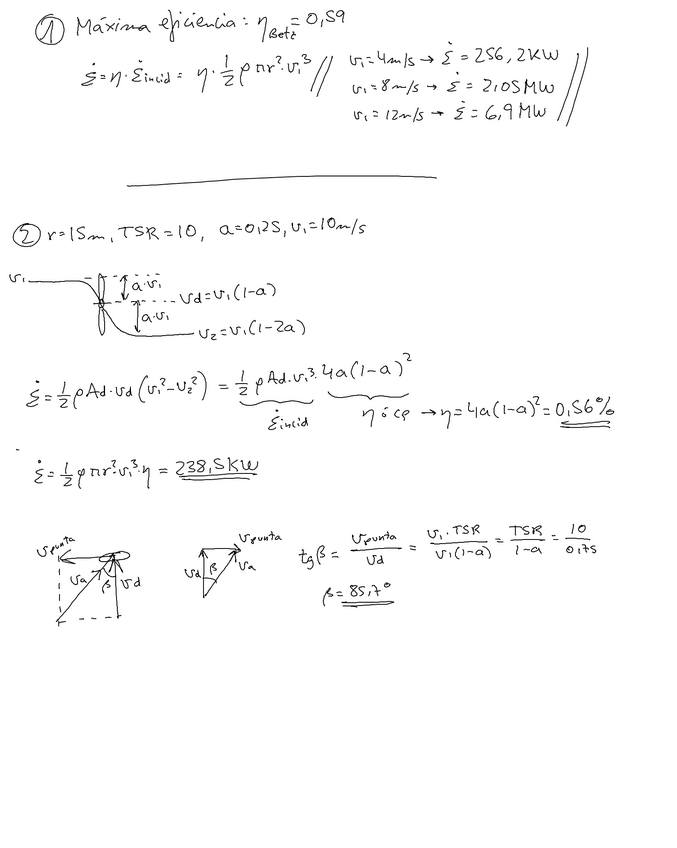 ① Máxima eficiencia: η_Betz = 0,59
Ė = η · Ė_incid = η · 1/2 ρ π r² · v₁³ //
v₁ = 4 m/s → Ė = 256,2 KW
v₁ = 8 m/s → Ė = 2,05 MW
v₁ = 12 m/s → Ė = 6,9 MW //
② r = 15m, TSR = 10, a = 0,25, v₁ = 10 m/s
v₁
a·v₁
vd = v₁(1-a)
a·v₁
v₂ = v₁(1-2a)
Ė = 1/2 ρ Ad · vd (v₁² - v₂²) = 1/2 ρ Ad · v₁³ · 4a(1-a)²
Ė_incid
η ó cp → η = 4a(1-a)² = 0,56%
Ė = 1/2 ρ π r² · v₁³ · η = 238,5 KW
v_punta
va
β
vd
v_punta
vd
β
va
tg β = v_punta / vd = v₁ · TSR / v₁(1-a) = TSR / 1-a = 10 / 0,75
β = 85,7°